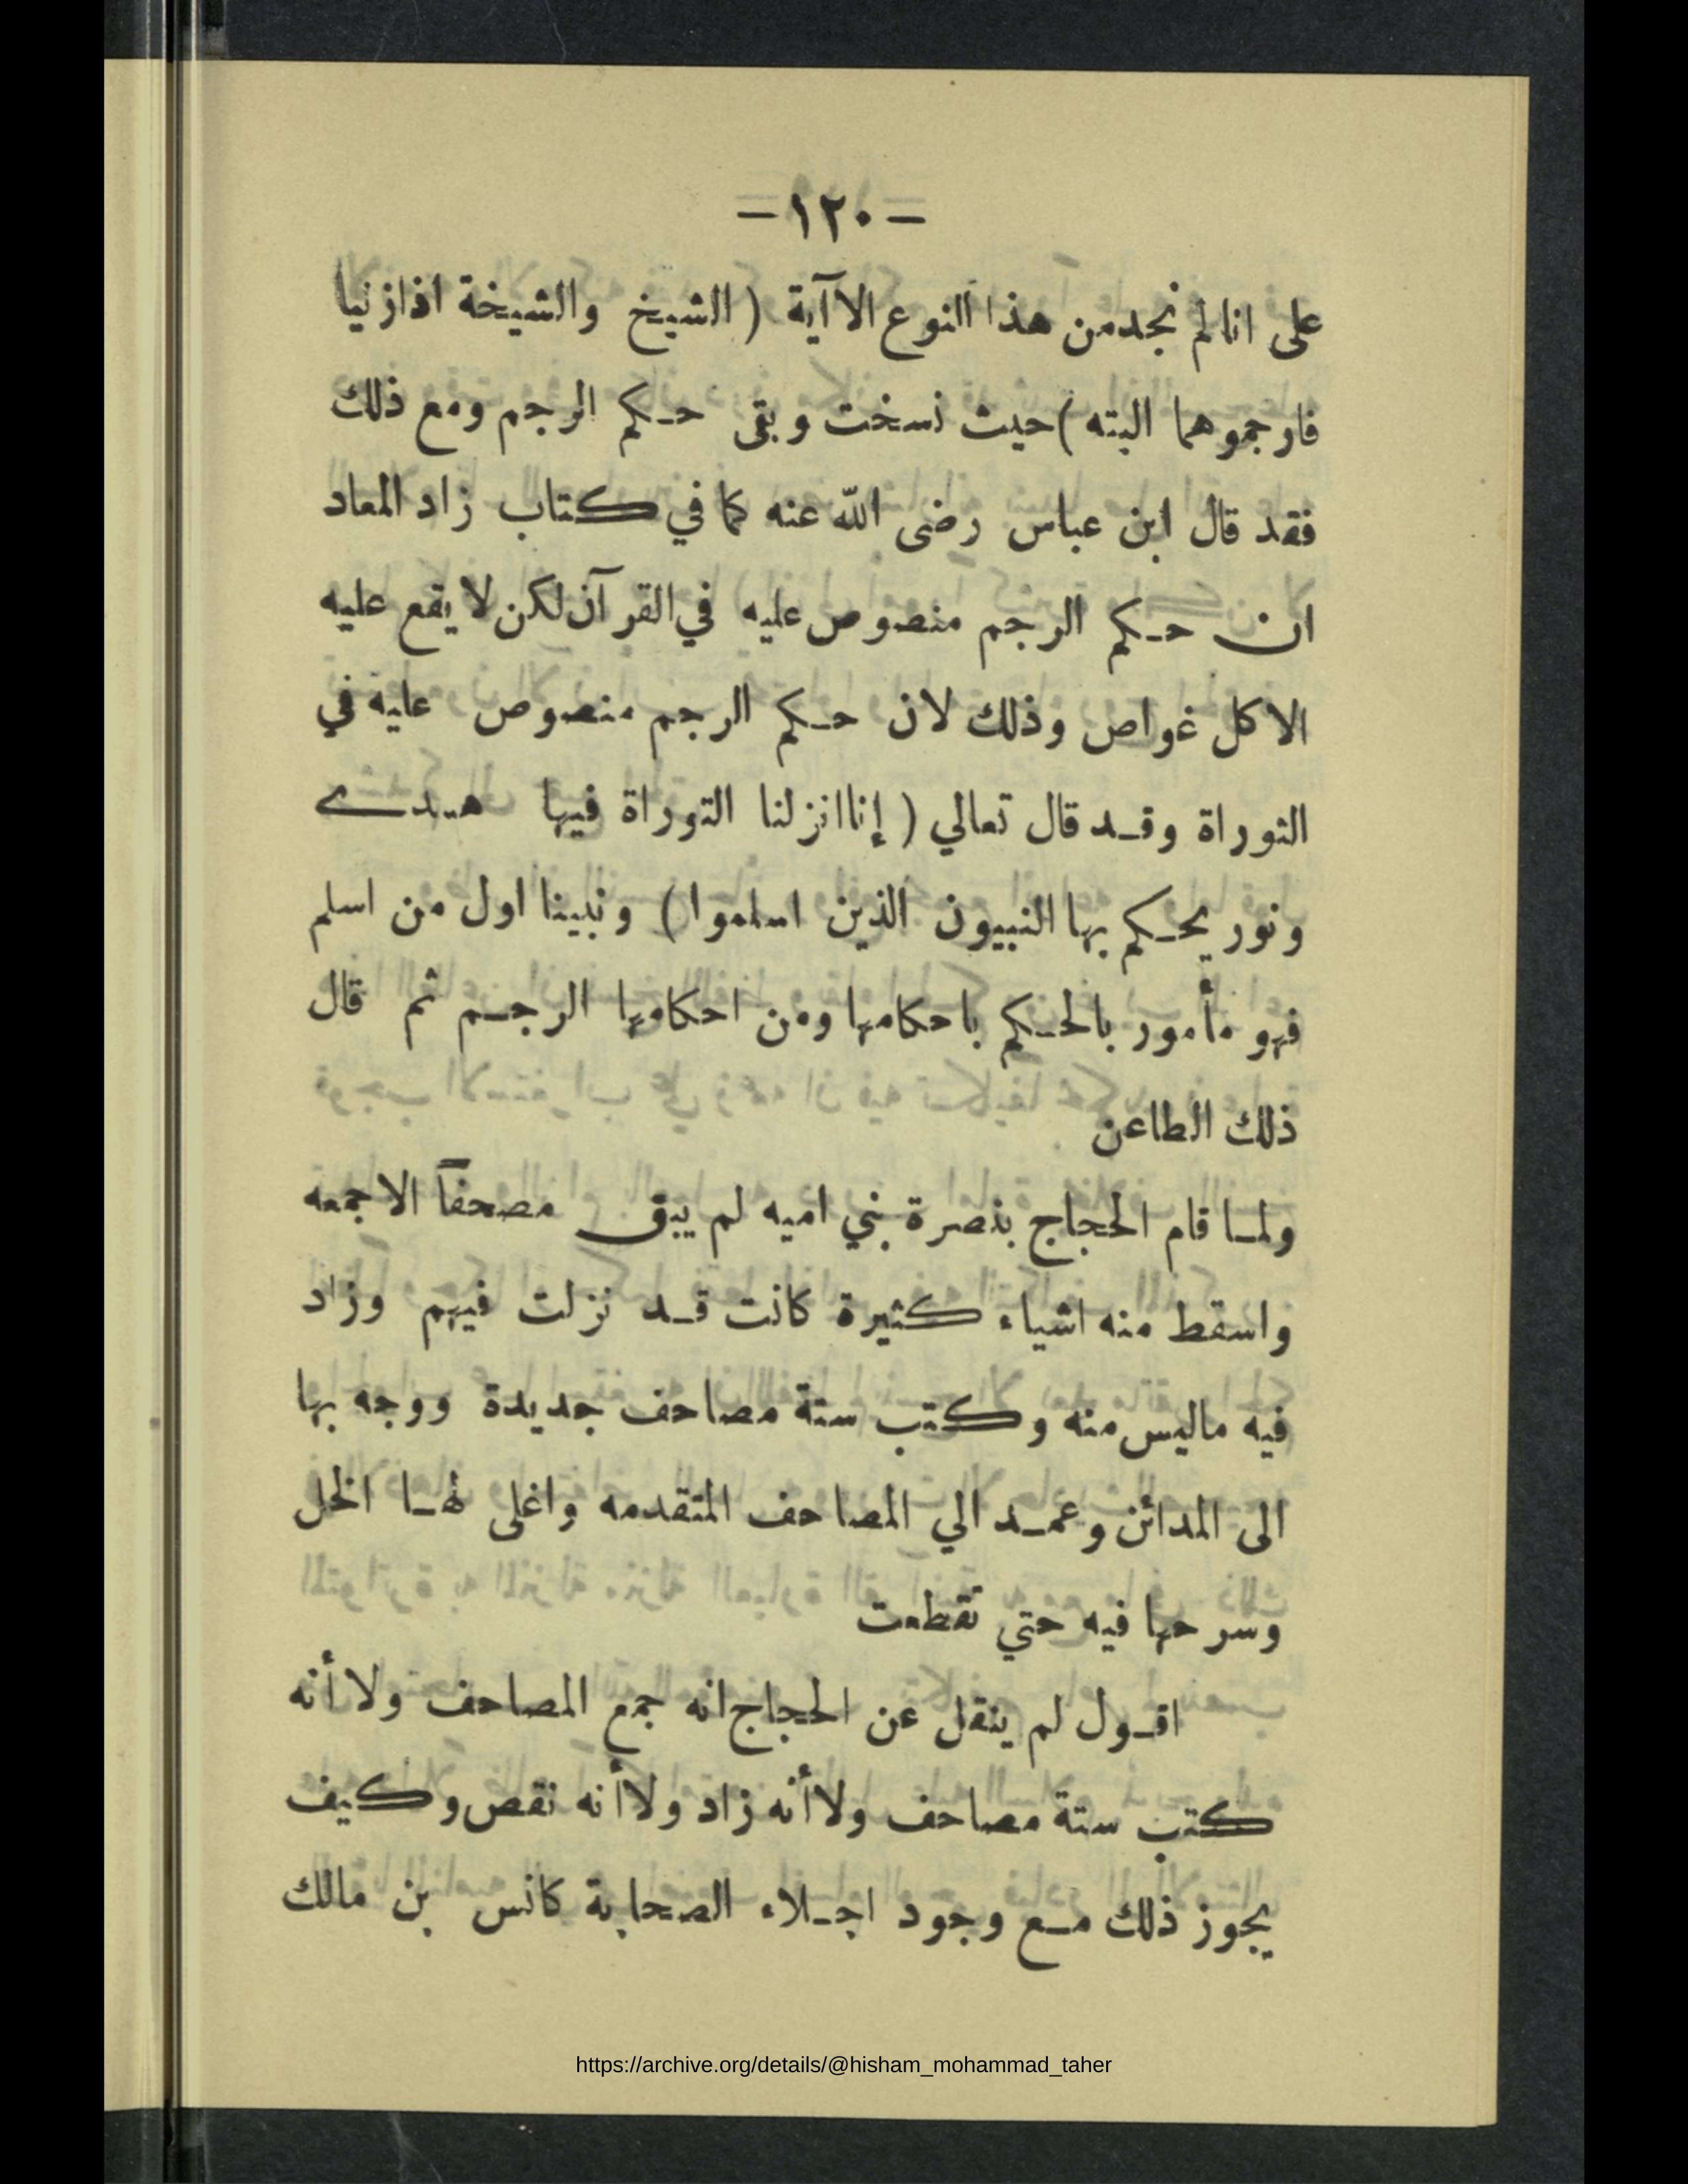 — ١٢٠ —
على انا لم نجد من هذا النوع الا آية ( الشيخ والشيخة اذا زنيا
فارجموهما البته ) حيث نسخت وبقى حكم الرجم ومع ذلك
فقد قال ابن عباس رضى الله عنه كما في كتاب زاد المعاد
ان حكم الرجم منصوص عليه في القرآن لكن لا يقع عليه
الا كل غواص وذلك لان حكم الرجم منصوص عليه في
التوراة وقد قال تعالي ( إنا انزلنا التوراة فيها هدى
ونور يحكم بها النبيون الذين اسلموا ) ونبينا اول من اسلم
فهو مأمور بالحكم باحكامها ومن احكامها الرجم ثم قال
ذلك الطاعن
ولما قام الحجاج بنصرة بني اميه لم يبق مصحفاً الا جمعه
واسقط منه اشياء كثيرة كانت قد نزلت فيهم وزاد
فيه ماليس منه وكتب ستة مصاحف جديدة ووجه بها
الى المدائن وعمد الي المصاحف المتقدمه واغلى لها الخل
وسرحها فيه حتي تقطعت
اقول لم ينقل عن الحجاج انه جمع المصاحف ولا أنه
كتب ستة مصاحف ولا أنه زاد ولا أنه نقص وكيف
يجوز ذلك مع وجود اجلاء الصحابة كانس بن مالك
https://archive.org/details/@hisham_mohammad_taher